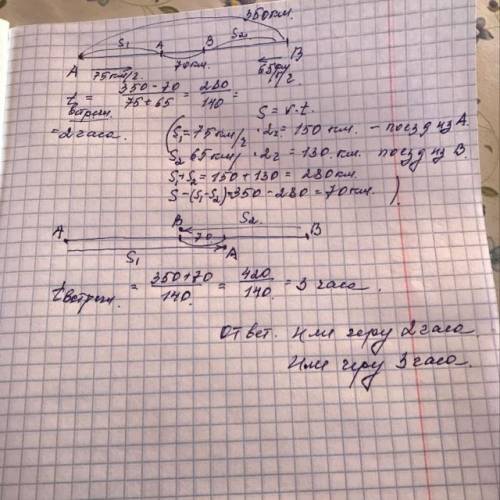 350км.
S₁ A B S₂
A 75км/г. 70км. 65км/г B
t встреч. = 350 - 70 / 75 + 65 = 280 / 140 =
S = v·t.
= 2 часа. (S₁ = 75км/г · 2г = 150 км. - поезд из A.
S₂ 65км/ · 2г = 130 км. поезд из B.
S₁+S₂ = 150 + 130 = 280км.
S-(S₁-S₂)=350 - 280 = 70км. )
A B S₂ B
70
S₁ A
t встреч. = 350+70 / 140 = 420 / 140 = 3 часа.
Ответ. Или через 2 часа.
Или через 3 часа.